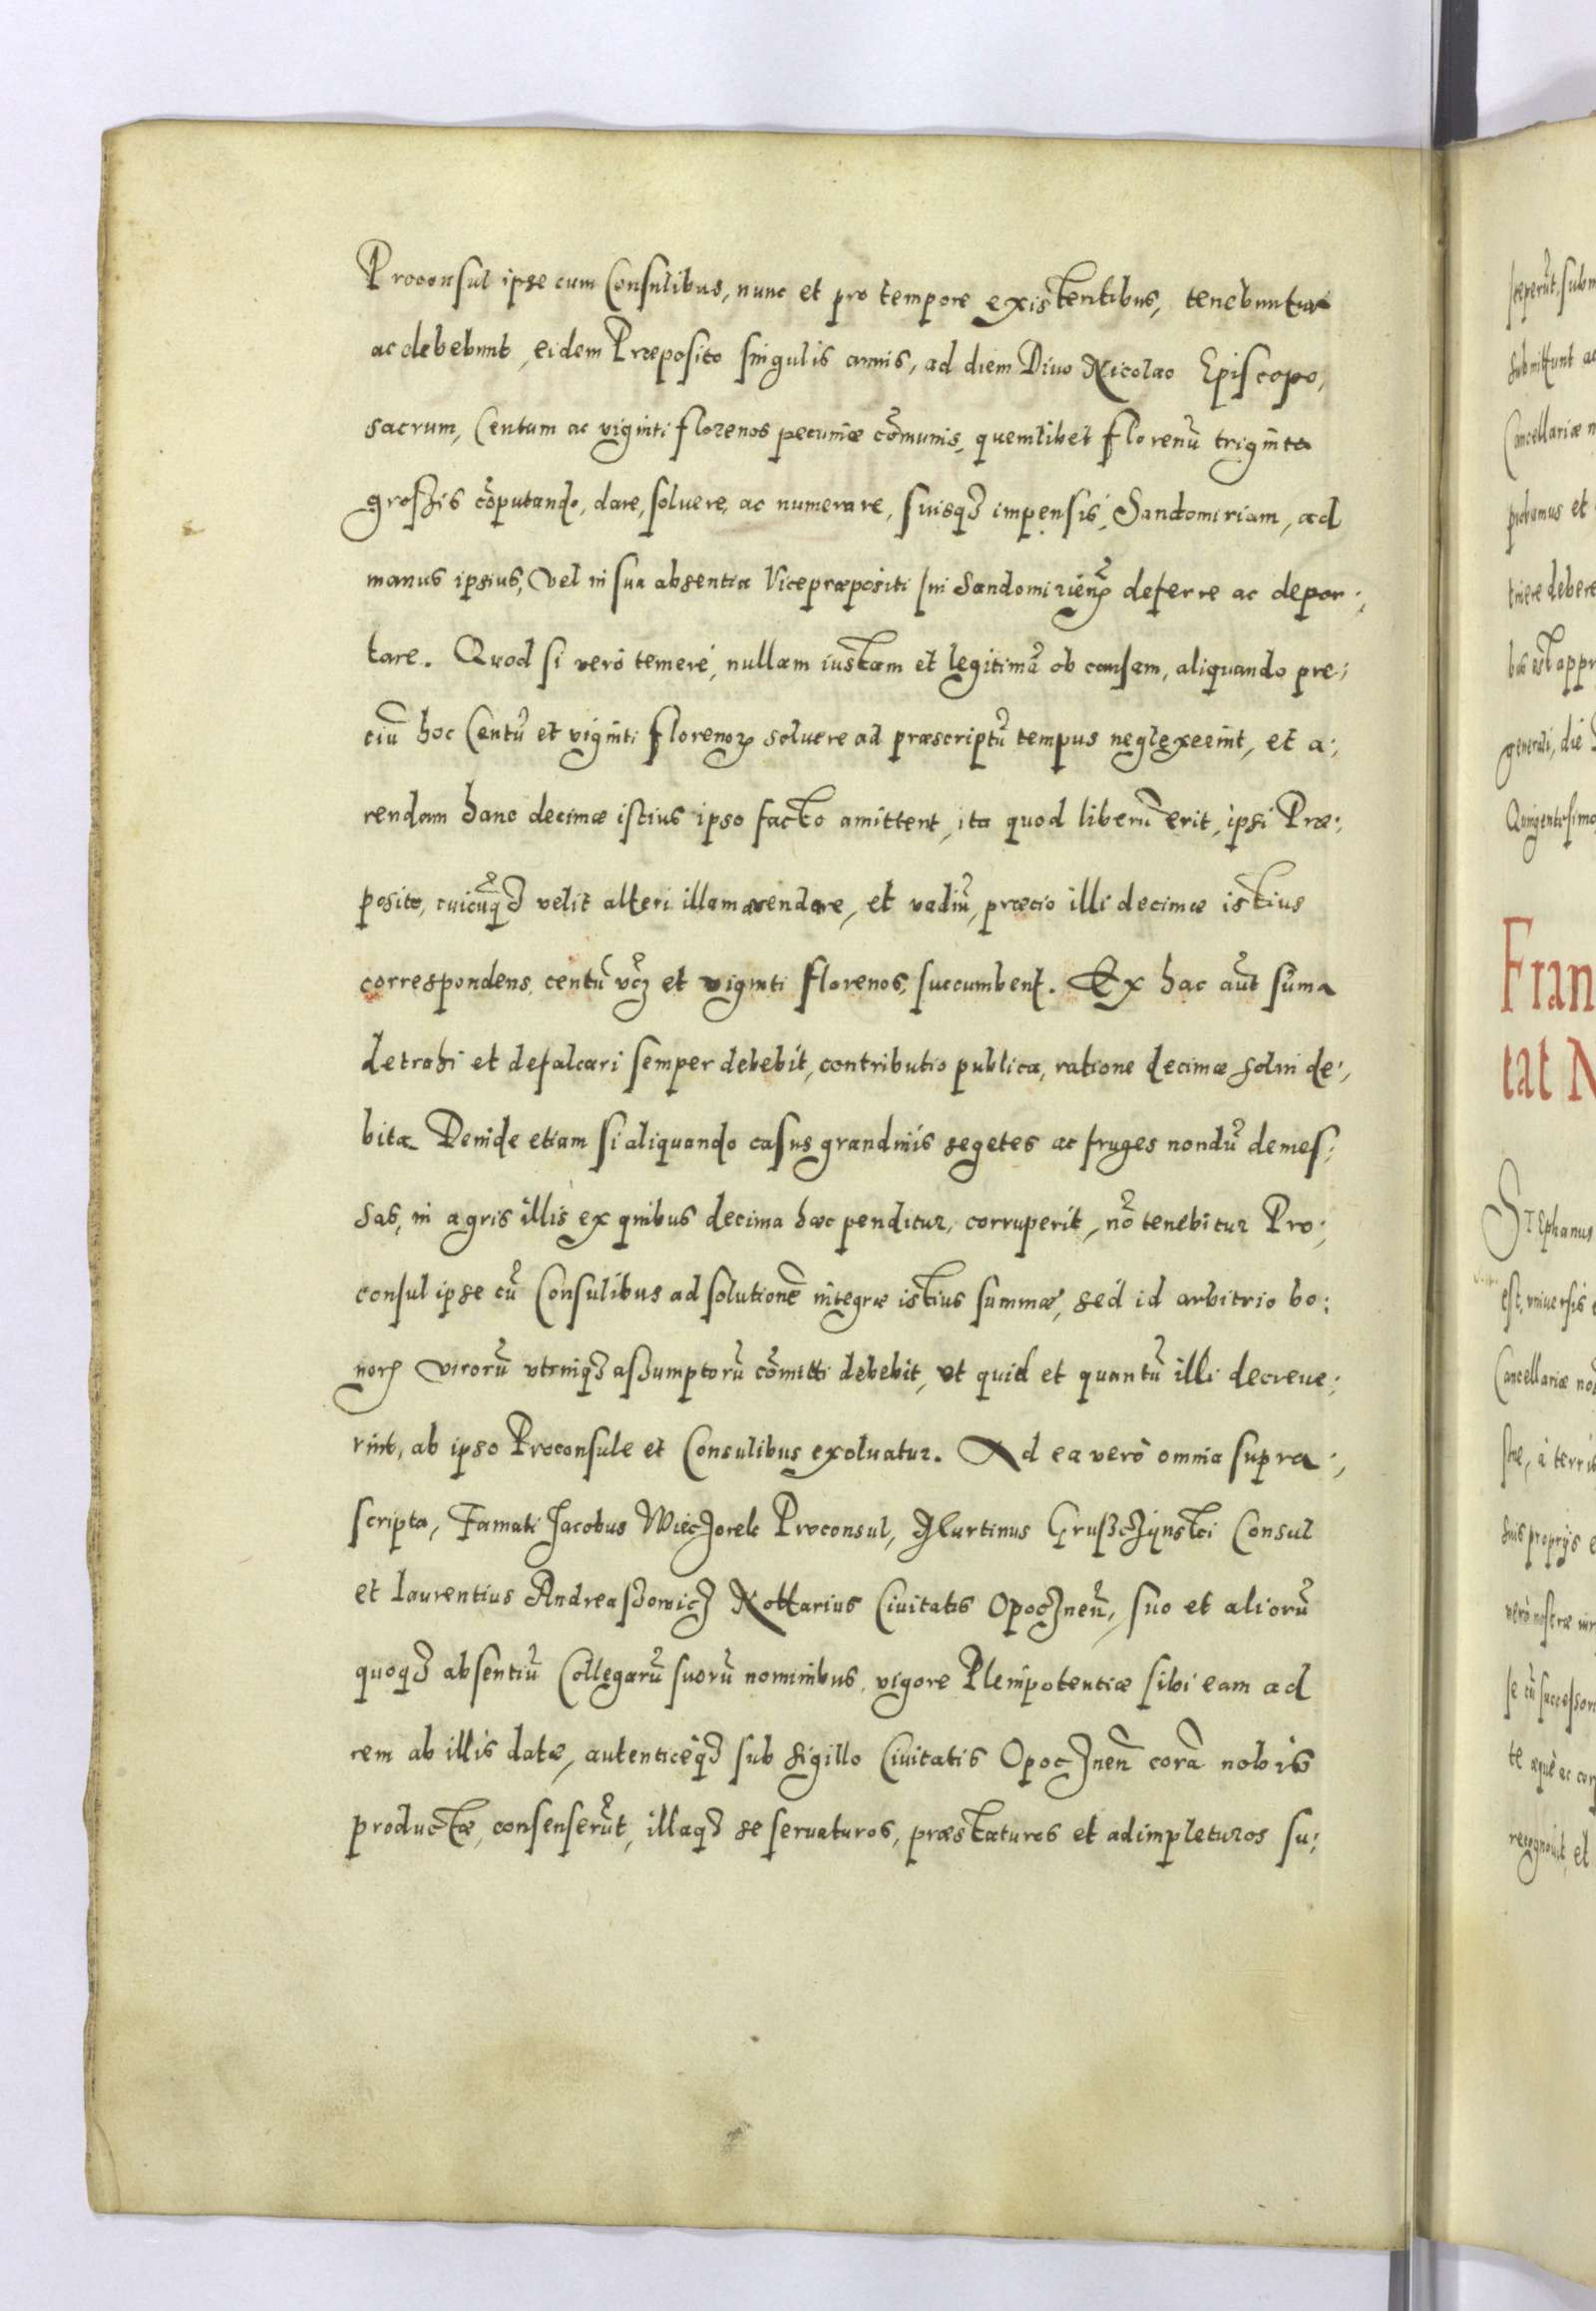 Proconsul ipse cum Consulibus, nunc et pro tempore existentibus, tenebuntur
ac debebunt, eidem Præposito singulis annis, ad diem Diuo Nicolao Episcopo,
sacrum, Centum ac viginti florenos pecuniæ cõmunis, quemlibet florenũ triginta
groszis cõputando, dare, soluere, ac numerare, suisq3 impensis, Sandomiriam, ad
manus ipsius, Vel in sua absentia Vicepræpositi sui Sandomirieñ deferre ac depor:,
tare. Quod si verò temerè, nullam iustam et legitimã ob causam, aliquando pre:,
ciũ hoc Centũ et viginti florenoꝝ soluere ad præscriptũ tempus neglexerint, et a:,
rendam hanc decimæ istius ipso facto amittent, ita quod liberũ erit, ipsi Præ:,
posito, cuicũq3 velit alteri illam arendare, et vadiũ, præcio illi decimæ istius
correspondens, centũ vcz et viginti florenos, succumbent. Ex hac aũt sũma
detrahi et defalcari semper debebit, contributio publica, ratione decimæ solui de:,
bita. Deinde etiam si aliquando casus grandinis segetes ac fruges nondũ demes:,
sas, in agris illis ex quibus decima hæc penditur, corruperit, nõ tenebitur Pro:,
consul ipse cũ Consulibus ad solutionẽ integræ istius summæ, sed id arbitrio bo:
noꝝ virorũ vtrinq3 assumptorũ cõmitti debebit, vt quid et quantũ illi decreue:,
rint, ab ipso Proconsule et Consulibus exoluatur. Ad ea verò omnia supra:,
scripta, Famati Jacobus Wieczorek Proconsul, Martinus Gruszczÿnski Consul
et Laurentius Andreaszowicz Nottarius Ciuitatis Opocznen̄, suo et aliorũ
quoq3 absentiũ Collegarũ suorũ nominibus, vigore Plenipotentiæ sibi eam ad
rem ab illis datæ, autenticeq3 sub sigillo Ciuitatis Opocznen̄ corã nobis
productæ, consenserũt, illaq3 se seruaturos, præstaturos et adimpleturos su:,
Fran
tat N
STephanus